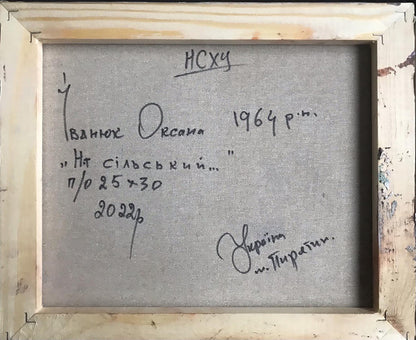 НСХУ
Іванюк Оксана 1964 р.н.
„Нт сільський..."
п/о 25х30
2022р
Україна
м. Пирятин.